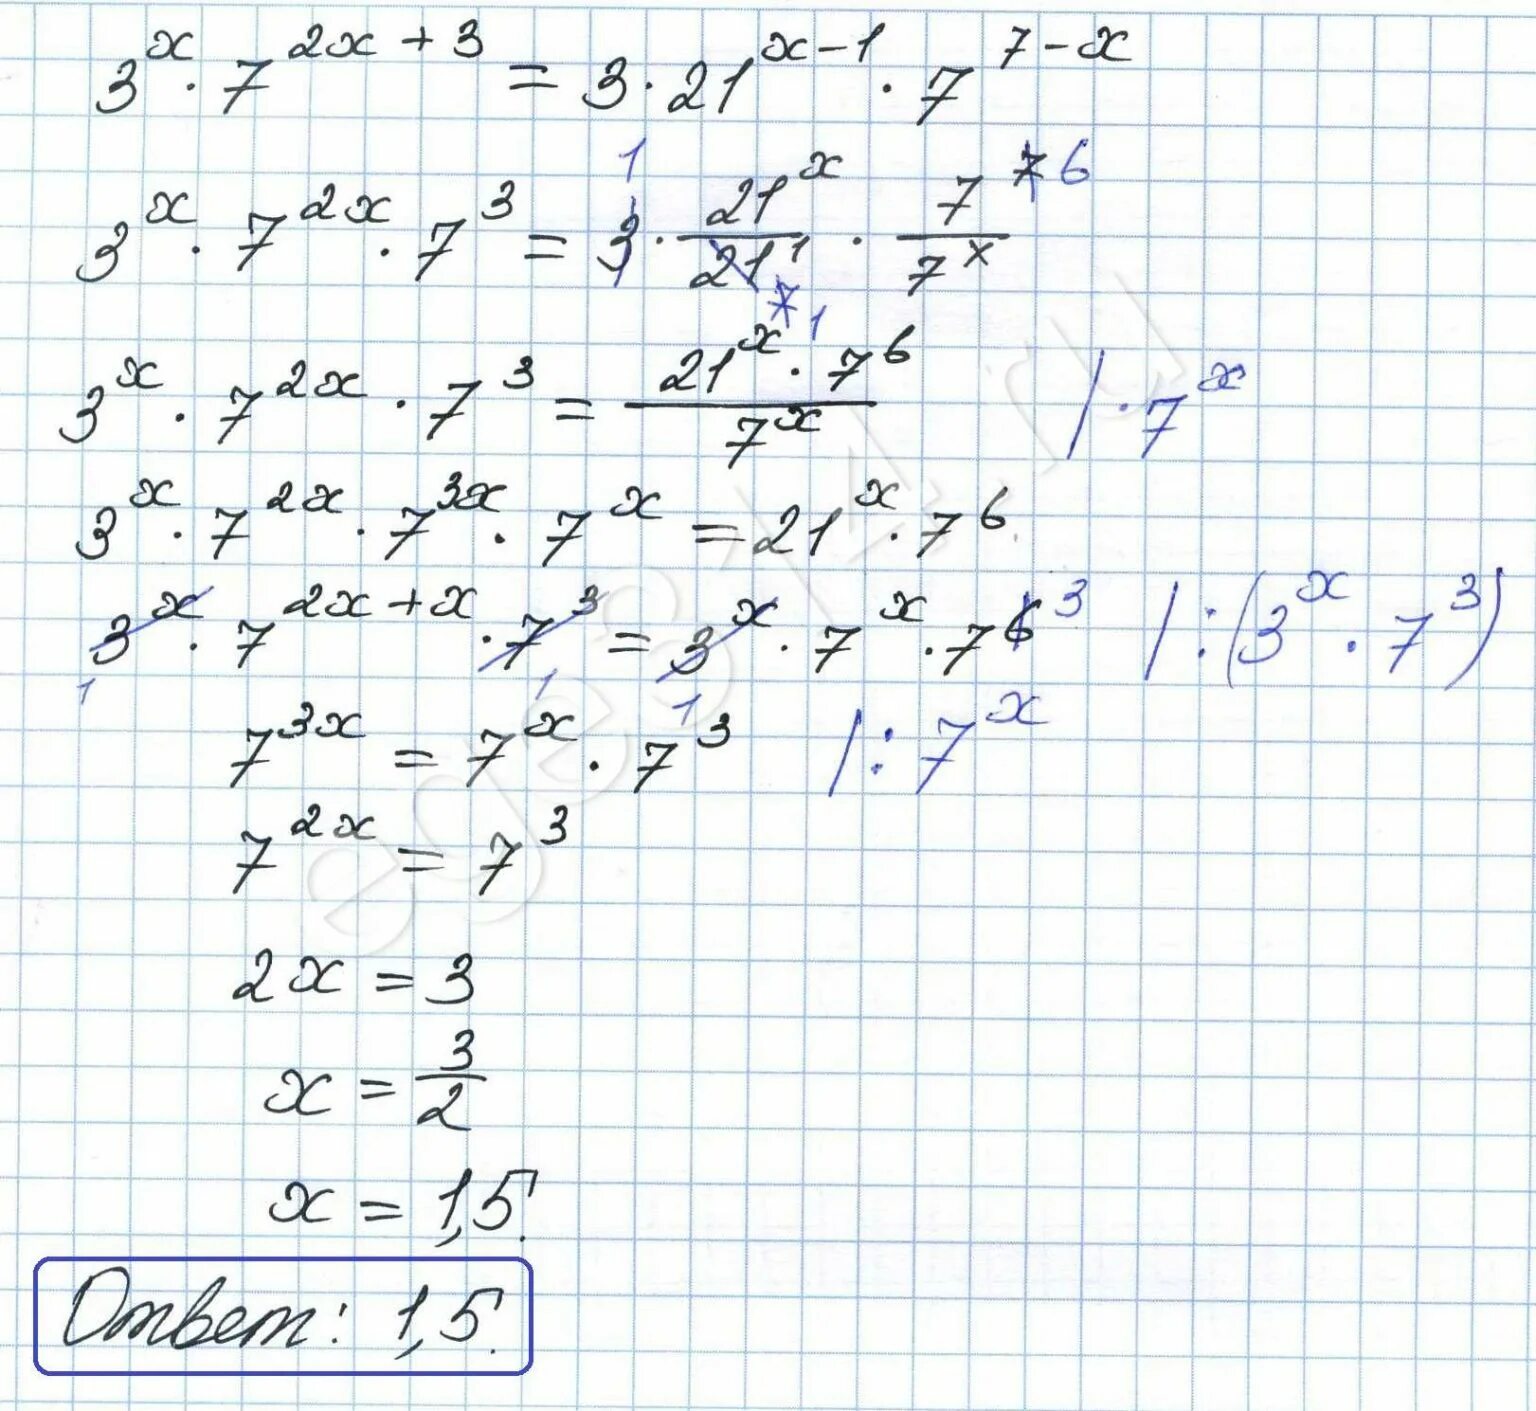 3^x · 7^{2x+3} = 3 · 21^{x-1} · 7^{7-x}
3^x · 7^{2x} · 7^3 = 3 1 · 21^x / 21^1 7 1 · 7^7 6 / 7^x
3^x · 7^{2x} · 7^3 = 21^x · 7^6 / 7^x | · 7^x
3^x · 7^{2x} · 7^{3x} · 7^x = 21^x · 7^6
3^x 1 · 7^{2x+x} · 7^3 1 = 3^x 1 · 7^x · 7^6 3 | : (3^x · 7^3)
7^{3x} = 7^x · 7^3 | : 7^x
7^{2x} = 7^3
2x = 3
x = 3/2
x = 1,5.
Ответ: 1,5.
ege314.ru